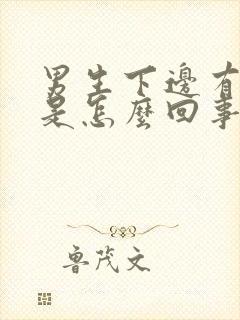 男生下邊有
是怎麼回事
魯茂文